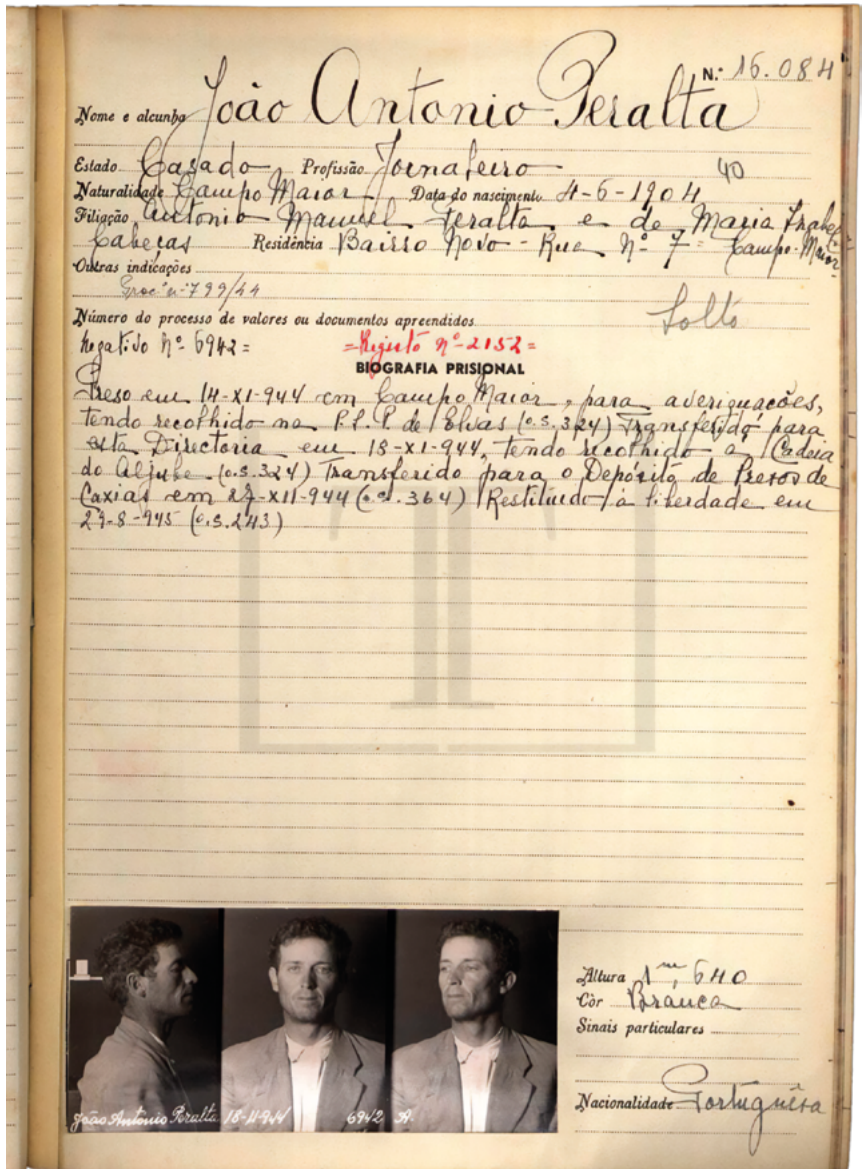 N.º 16.084
Nome e alcunha João Antonio Peralta
Estado Casado Profissão Jornaleiro 40
Naturalidade Campo Maior Data do nascimento 4-6-1904
Filiação Antonio Manuel Peralta e de Maria Izabel
Cabeças Residência Bairro Novo - Rua Nº 7 = Campo-Maior-
Outras indicações
Procº nº 799/44
Solto
Número do processo de valores ou documentos apreendidos
Negativo Nº 6942 = = Registo Nº 2152 =
BIOGRAFIA PRISIONAL
Preso em 14-XI-944 em Campo Maior, para averiguações,
tendo recolhido na P.S.P. de Elvas (o.s. 324) Transferido para
esta Directoria em 18-XI-944, tendo recolhido à Cadeia
do Aljube. (o.s. 324) Transferido para o Depósito de Presos de
Caxias em 27-XII-944 (o.s. 364) Restituido à liberdade em
29-8-945 (o.s. 243)
Altura 1m,640
Côr Branca
Sinais particulares
Nacionalidade Portuguêsa
João Antonio Peralta 18-11-944 6942 A.